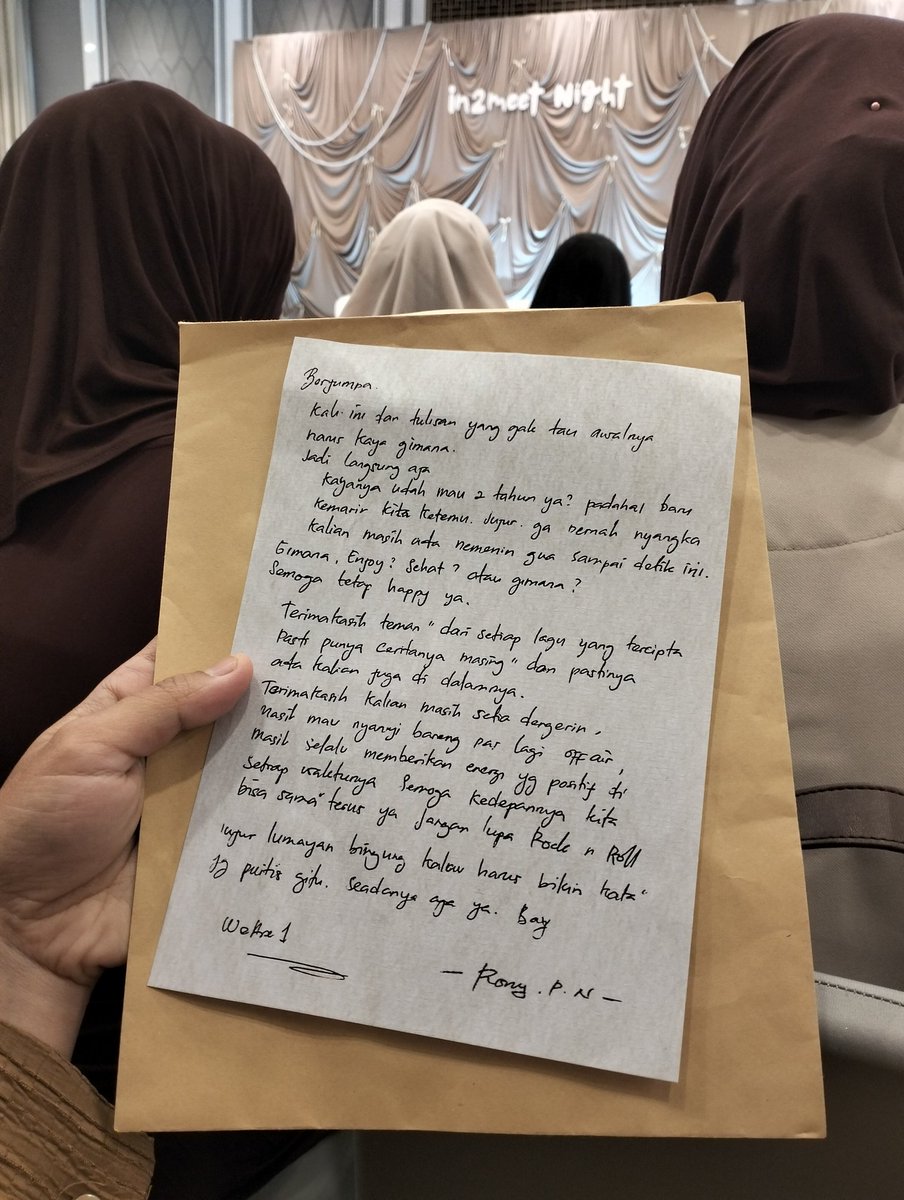 in2meet Night
Berjumpa.
Kali ini dan tulisan yang gak tau awalnya
harus kaya gimana.
Jadi langsung aja
kayanya udah mau 2 tahun ya? padahal baru
kemarin kita ketemu. Jujur. ga pernah nyangka
kalian masih ada nemenin gua sampai detik ini.
Gimana, Enjoy? Sehat? atau gimana?
Semoga tetap happy ya.
Terimakasih teman" dari setiap lagu yang tercipta
Pasti punya ceritanya masing" dan pastinya
ada kalian juga di dalamnya.
Terimakasih kalian masih setia dengerin,
masih mau nyanyi bareng pas lagi off air,
masih selalu memberikan energi yg positif di
setiap waktunya Semoga kedepannya kita
bisa sama" terus ya Jangan lupa Rock n Roll
Jujur lumayan bingung kalau harus bikin kata"
yg puitis gitu. Seadanya aja ya. Bay
— Rony. P. N —